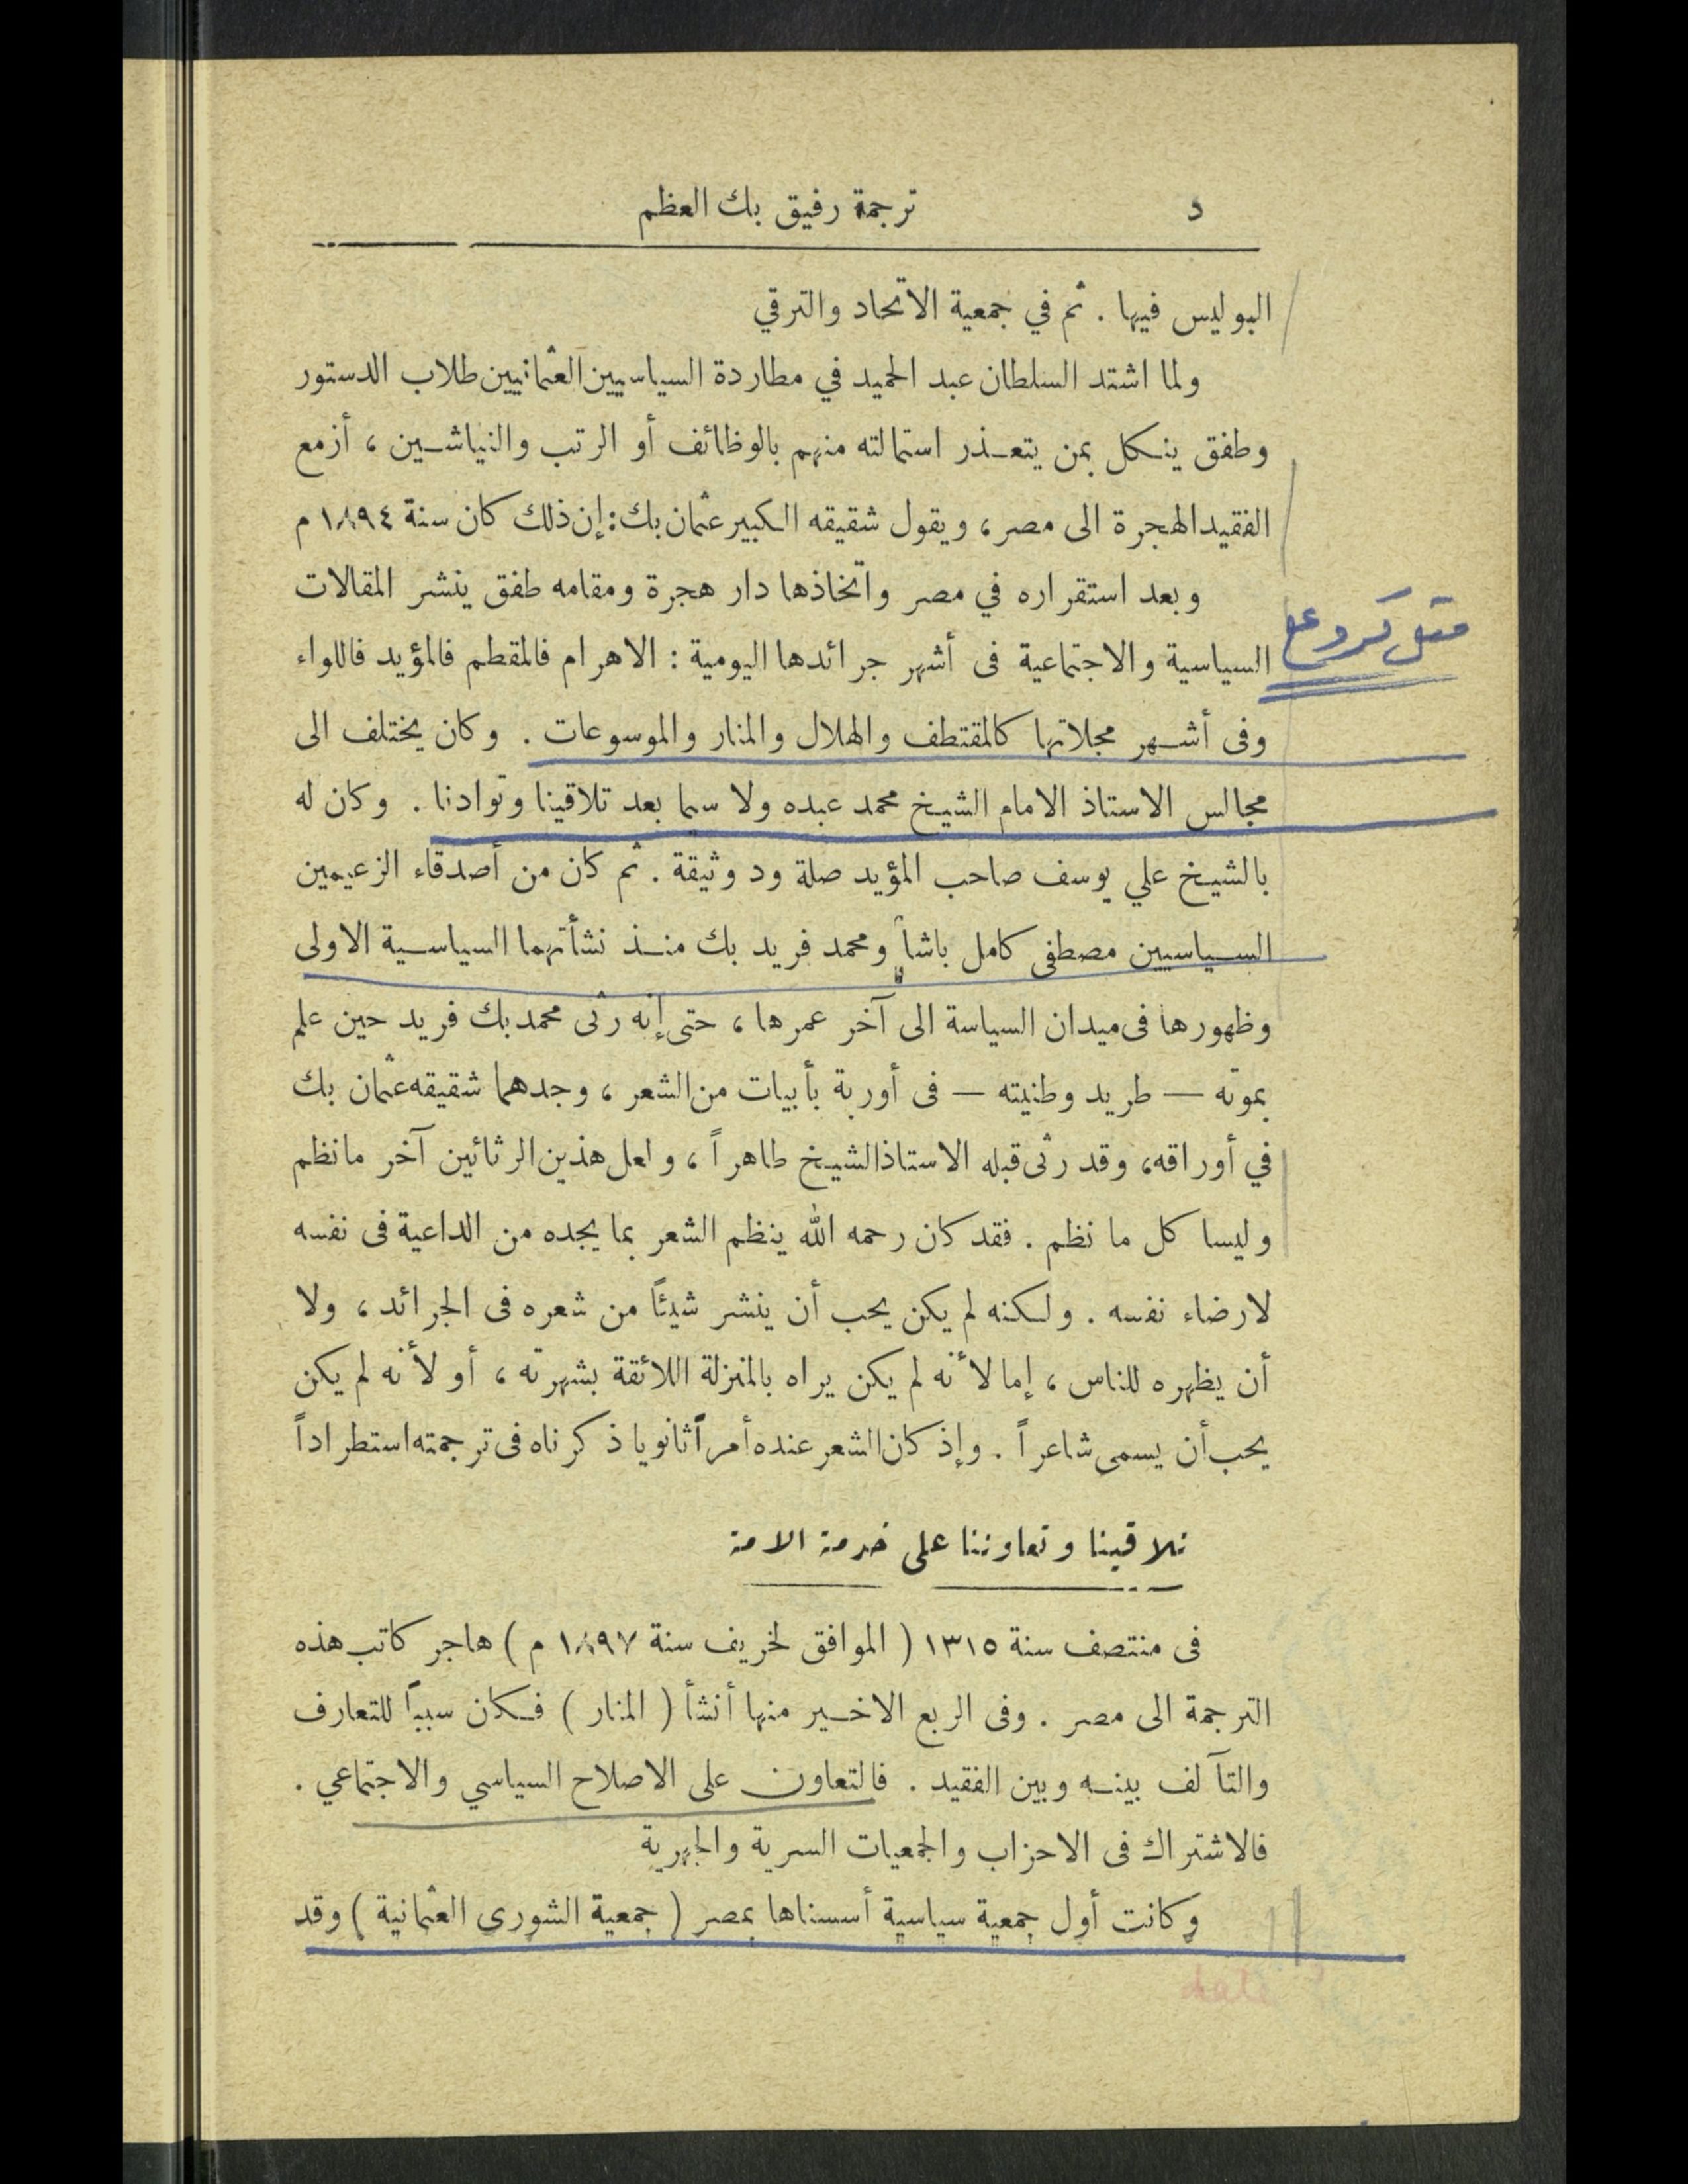 د
ترجمة رفيق بك العظم
البوليس فيها . ثم في جمعية الاتحاد والترقي
ولما اشتد السلطان عبد الحميد في مطاردة السياسيين العثمانيين طلاب الدستور
وطفق ينكل بمن يتعذر استمالته منهم بالوظائف أو الرتب والنياشين ، أزمع
الفقيد الهجرة الى مصر ، ويقول شقيقه الكبير عثمان بك : إن ذلك كان سنة ١٨٩٤ م
وبعد استقراره في مصر واتخاذها دار هجرة ومقامه طفق ينشر المقالات
السياسية والاجتماعية فى أشهر جرائدها اليومية : الاهرام فالمقطم فالمؤيد فاللواء
وفى أشهر مجلاتها كالمقتطف والهلال والمنار والموسوعات . وكان يختلف الى
مجالس الاستاذ الامام الشيخ محمد عبده ولا سيما بعد تلاقينا وتوادنا . وكان له
بالشيخ علي يوسف صاحب المؤيد صلة ود وثيقة . ثم كان من أصدقاء الزعيمين
السياسيين مصطفى كامل باشا ومحمد فريد بك منذ نشأتهما السياسية الاولى
وظهورها فى ميدان السياسة الى آخر عمرها ، حتى إنه رثى محمد بك فريد حين علم
بموته — طريد وطنيته — فى أوربة بأبيات من الشعر ، وجدهما شقيقه عثمان بك
في أوراقه ، وقد رثى قبله الاستاذ الشيخ طاهراً ، ولعل هذين الرثائين آخر ما نظم
وليسا كل ما نظم . فقد كان رحمه الله ينظم الشعر بما يجده من الداعية فى نفسه
لارضاء نفسه . ولكنه لم يكن يحب أن ينشر شيئاً من شعره فى الجرائد ، ولا
أن يظهره للناس ، إما لأنه لم يكن يراه بالمنزلة اللائقة بشهرته ، أو لأنه لم يكن
يحب أن يسمى شاعراً . وإذ كان الشعر عنده أمراً ثانويا ذكرناه فى ترجمته استطراداً
تلاقينا وتعاوننا على خدمة الامة
فى منتصف سنة ١٣١٥ ( الموافق لخريف سنة ١٨٩٧ م ) هاجر كاتب هذه
الترجمة الى مصر . وفى الربع الاخير منها أنشأ ( المنار ) فكان سبباً للتعارف
والتآلف بينه وبين الفقيد . فالتعاون على الاصلاح السياسي والاجتماعي .
فالاشتراك فى الاحزاب والجمعيات السرية والجهرية
وكانت أول جمعية سياسية أسسناها بمصر ( جمعية الشورى العثمانية ) وقد